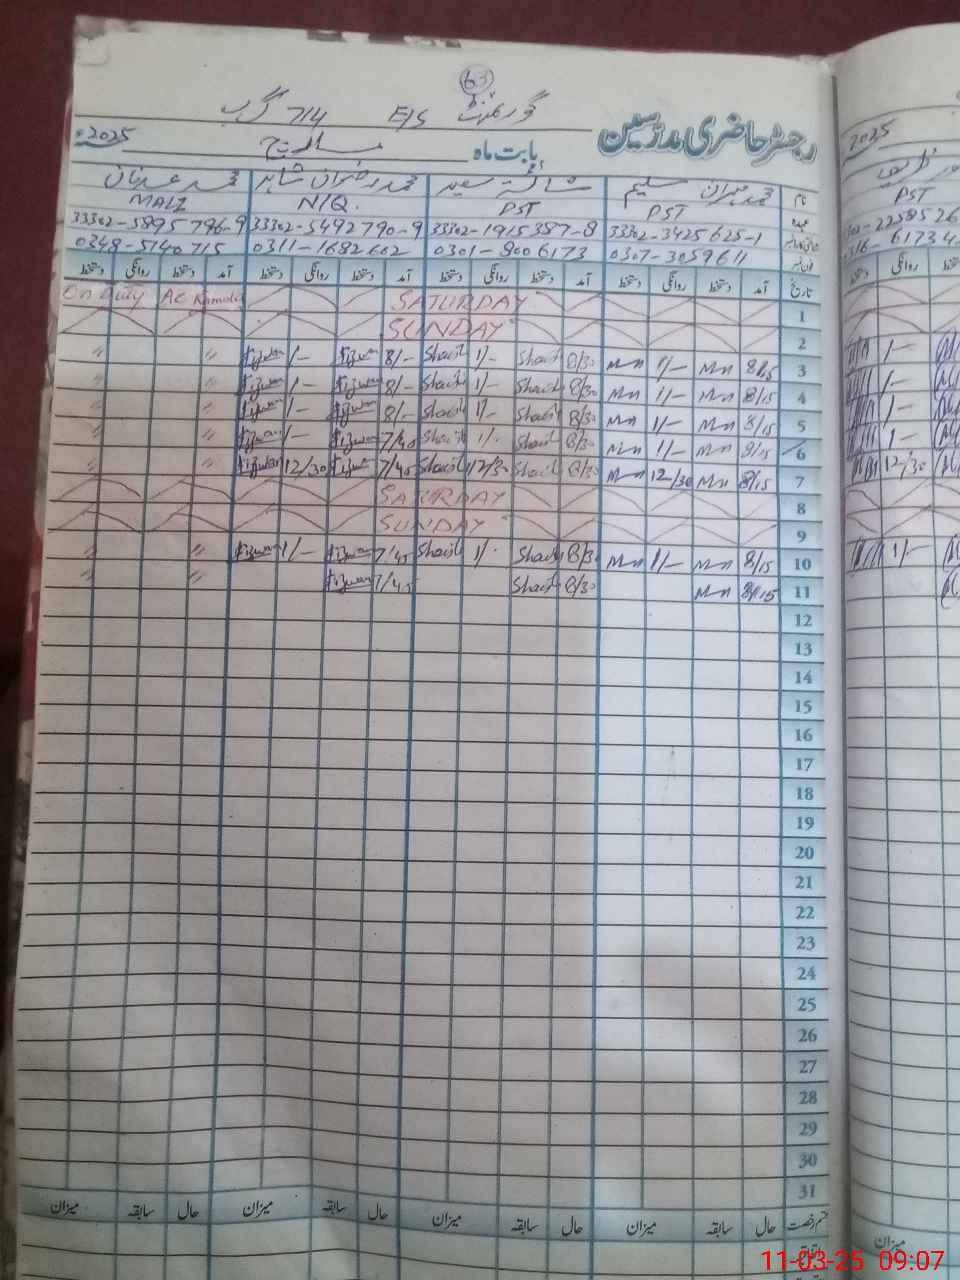 63
گورنمنٹ E/S 714 گ ب
رجسٹر حاضری مدرسین
بابت ماہ مارچ 2025ء
نام محمد عمران سلیم شائستہ سعید محمد رضوان شاہد محمد عدنان
عہدہ PST PST N/Q. MALI
33302-3425625-1 33302-1915387-8 33302-5492790-9 33302-5895796-9
0307-3059611 0301-8006173 0311-1682602 0348-5140715
تاریخ آمد دستخط روانگی دستخط آمد دستخط روانگی دستخط آمد دستخط روانگی دستخط آمد دستخط روانگی دستخط
1 SATURDAY On Duty AC Kamalia
2 SUNDAY
3 8/15 1/- 8/30 Shaist 1/- Shaist 8/- Rizwan 1/- Rizwan " "
4 8/15 1/- 8/30 Shaist 1/- Shaist 8/- Rizwan 1/- Rizwan "
5 8/15 1/- 8/30 Shaist 1/- Shaist 8/- Rizwan 1/- Rizwan "
6 8/15 1/- 8/30 Shaist 1/- Shaist 7/40 Rizwan 1/- Rizwan "
7 8/15 12/30 8/30 Shaist 12/30 Shaist 7/45 Rizwan 12/30 Rizwan " "
8 SATURDAY
9 SUNDAY
10 8/15 1/- 8/30 Shaist 1/- Shaist 7/45 Rizwan 1/- Rizwan " "
11 8/15 8/30 Shaist 7/45 Rizwan " "
12
13
14
15
16
17
18
19
20
21
22
23
24
25
26
27
28
29
30
31
قسم رخصت حال سابقہ میزان حال سابقہ میزان حال سابقہ میزان حال سابقہ میزان
2025
PST
1/-
1/-
1/-
1-
12/30
1/-
میزان
11-03-25 09:07